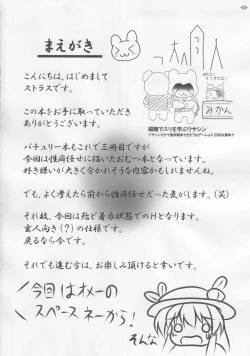 -04-
まえがき
みかん
こんにちは、はじめまして
ストラスです。
この本をお手に取っていただき
ありがとうございます。
パチュリー本もこれで三冊目ですが
今回は性癖任せに描いたおむつ本となっています。
好き嫌いが大きく分かれそうな内容かもしれませんね。
でも、よく考えたら前から性癖任せだった気がします。(笑)
それ故、今回は殆ど着衣状態での川となります。
玄人向き(?)の仕様です。
戻るなら今です。
それでも進む方は、お楽しみ頂けると幸いです。
今回はオメーの
スペースネーから!
そんな